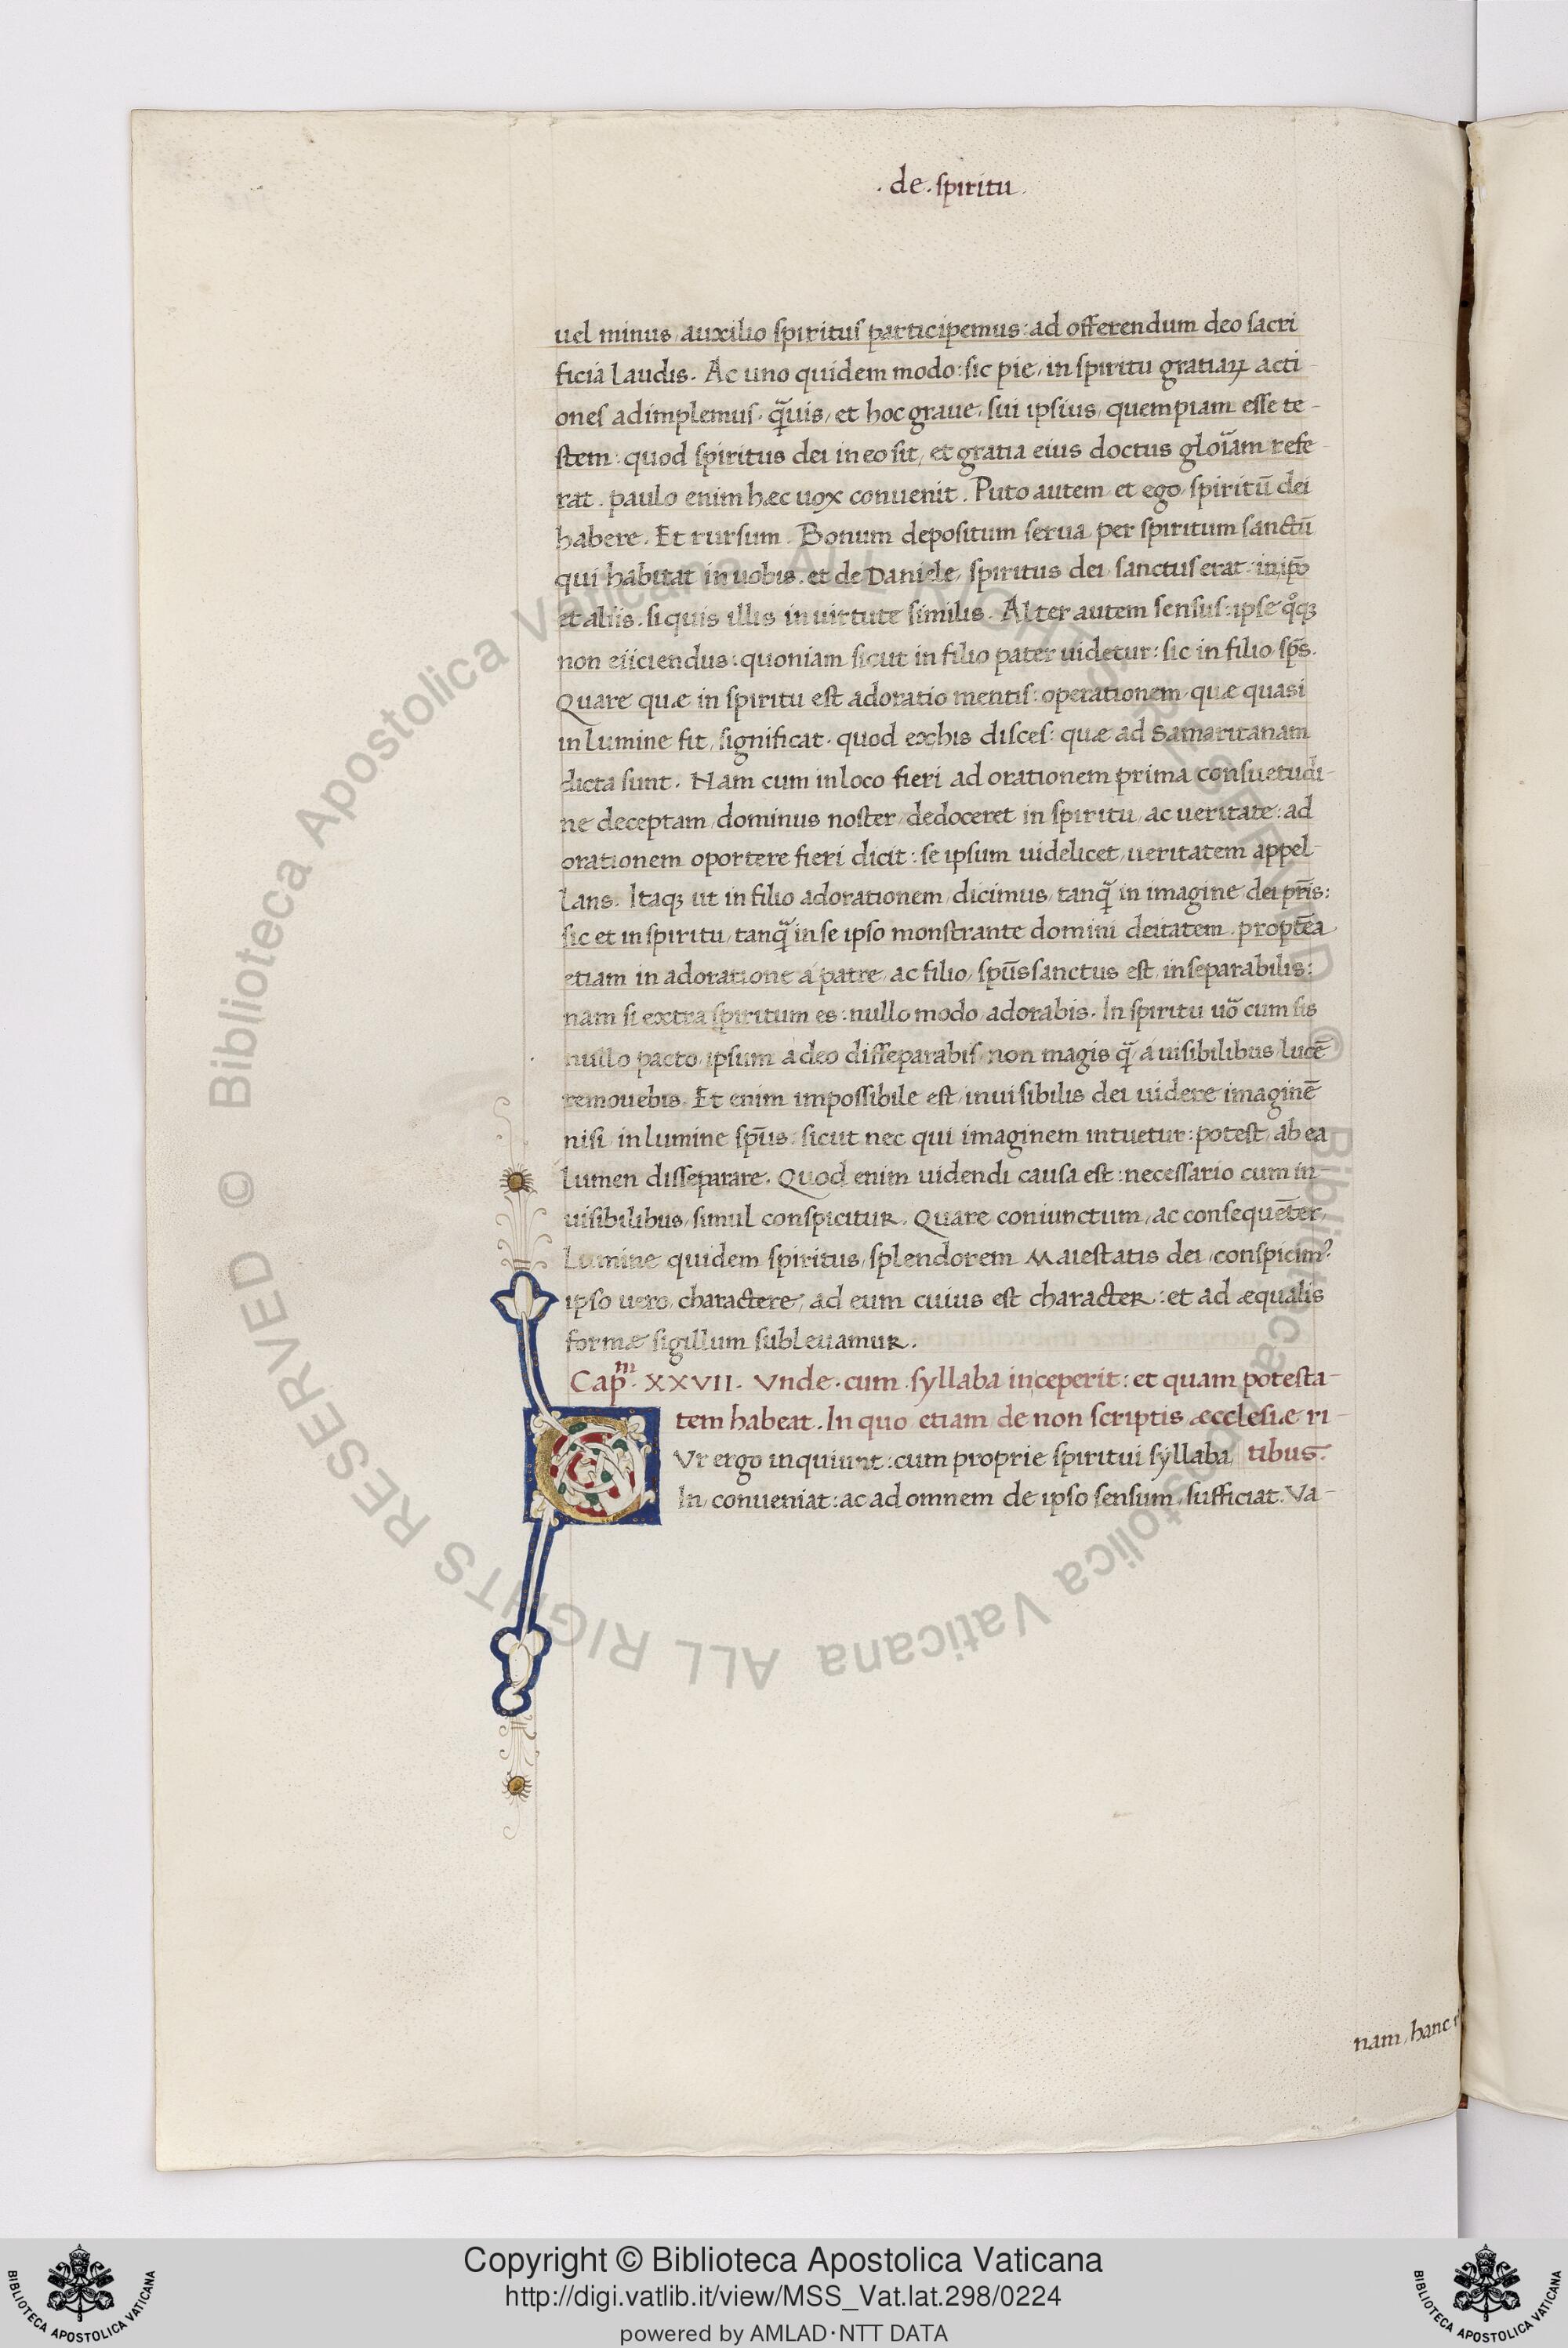 . de . spiritu .
uel minus, auxilio spiritus participemus: ad offerendum deo sacri
ficia laudis. Ac uno quidem modo: sic pie, in spiritu gratiaꝝ acti-
ones adimplemus. q̃uis, et hoc graue, sui ipsius, quempiam esse te-
stem: quod spiritus dei in eo sit, et gratia eius doctus gloĩam refe-
rat. paulo enim hæc uox conuenit. Puto autem et ego spiritū dei
habere. Et rursum. Bonum depositum serua per spiritum sanctū
qui habitat in uobis. et de Daniele, spiritus dei sanctus erat in ip̄o
et aliis. si quis illis in uirtute similis. Alter autem sensus: ipse qͦqꝫ
non eiiciendus: quoniam sicut in filio pater uidetur: sic in filio sp̄s.
Quare quæ in spiritu est adoratio mentis: operationem, quæ quasi
in lumine fit, significat. quod ex his disces: quæ ad Samaritanam
dicta sunt. Nam cum in loco fieri adorationem prima consuetudi-
ne deceptam, dominus noster, dedoceret in spiritu, ac ueritate: ad
orationem oportere fieri dicit: se ipsum uidelicet, ueritatem appel-
lans. Itaqꝫ ut in filio adorationem dicimus, tanq̃ in imagine dei pr̄is:
sic et in spiritu, tanq̃ in se ipso monstrante domini deitatem. propt̄ea
etiam in adoratione á patre, ac filio, sp̄us sanctus est, inseparabilis:
nam si extra spiritum es: nullo modo adorabis. In spiritu uõ cum sis
nullo pacto, ipsum a deo disseparabis, non magis q̃ á uisibilibus lucē
remouebis. Et enim impossibile est, inuisibilis dei uidere imaginē
nisi in lumine sp̄us: sicut nec qui imaginem intuetur: potest, ab ea
lumen disseparare. Quod enim uidendi causa est: necessario cum in-
uisibilibus, simul conspicitur. Quare coniunctum, ac consequēter,
Lumine quidem spiritus, splendorem Maiestatis dei, conspicimꝰ
ipso uero, charactere, ad eum cuius est character: et ad æqualis
formæ sigillum subleuamur.
Cap̄ᵐ. XXVII. Vnde. cum syllaba inceperit: et quam potesta-
tem habeat. In quo etiam de non scriptis æcclesiæ ri-
CVr ergo inquiunt: cum proprie spiritui syllaba tibus.
In, conueniat: ac ad omnem de ipso sensum, sufficiat. Va-
nam, hanc
© Biblioteca Apostolica Vaticana ALL RIGHTS RESERVED
© Biblioteca Apostolica Vaticana ALL RIGHTS RESERVED
BIBLIOTECA APOSTOLICA VATICANA
Copyright © Biblioteca Apostolica Vaticana
http://digi.vatlib.it/view/MSS_Vat.lat.298/0224
powered by AMLAD·NTT DATA
BIBLIOTECA APOSTOLICA VATICANA